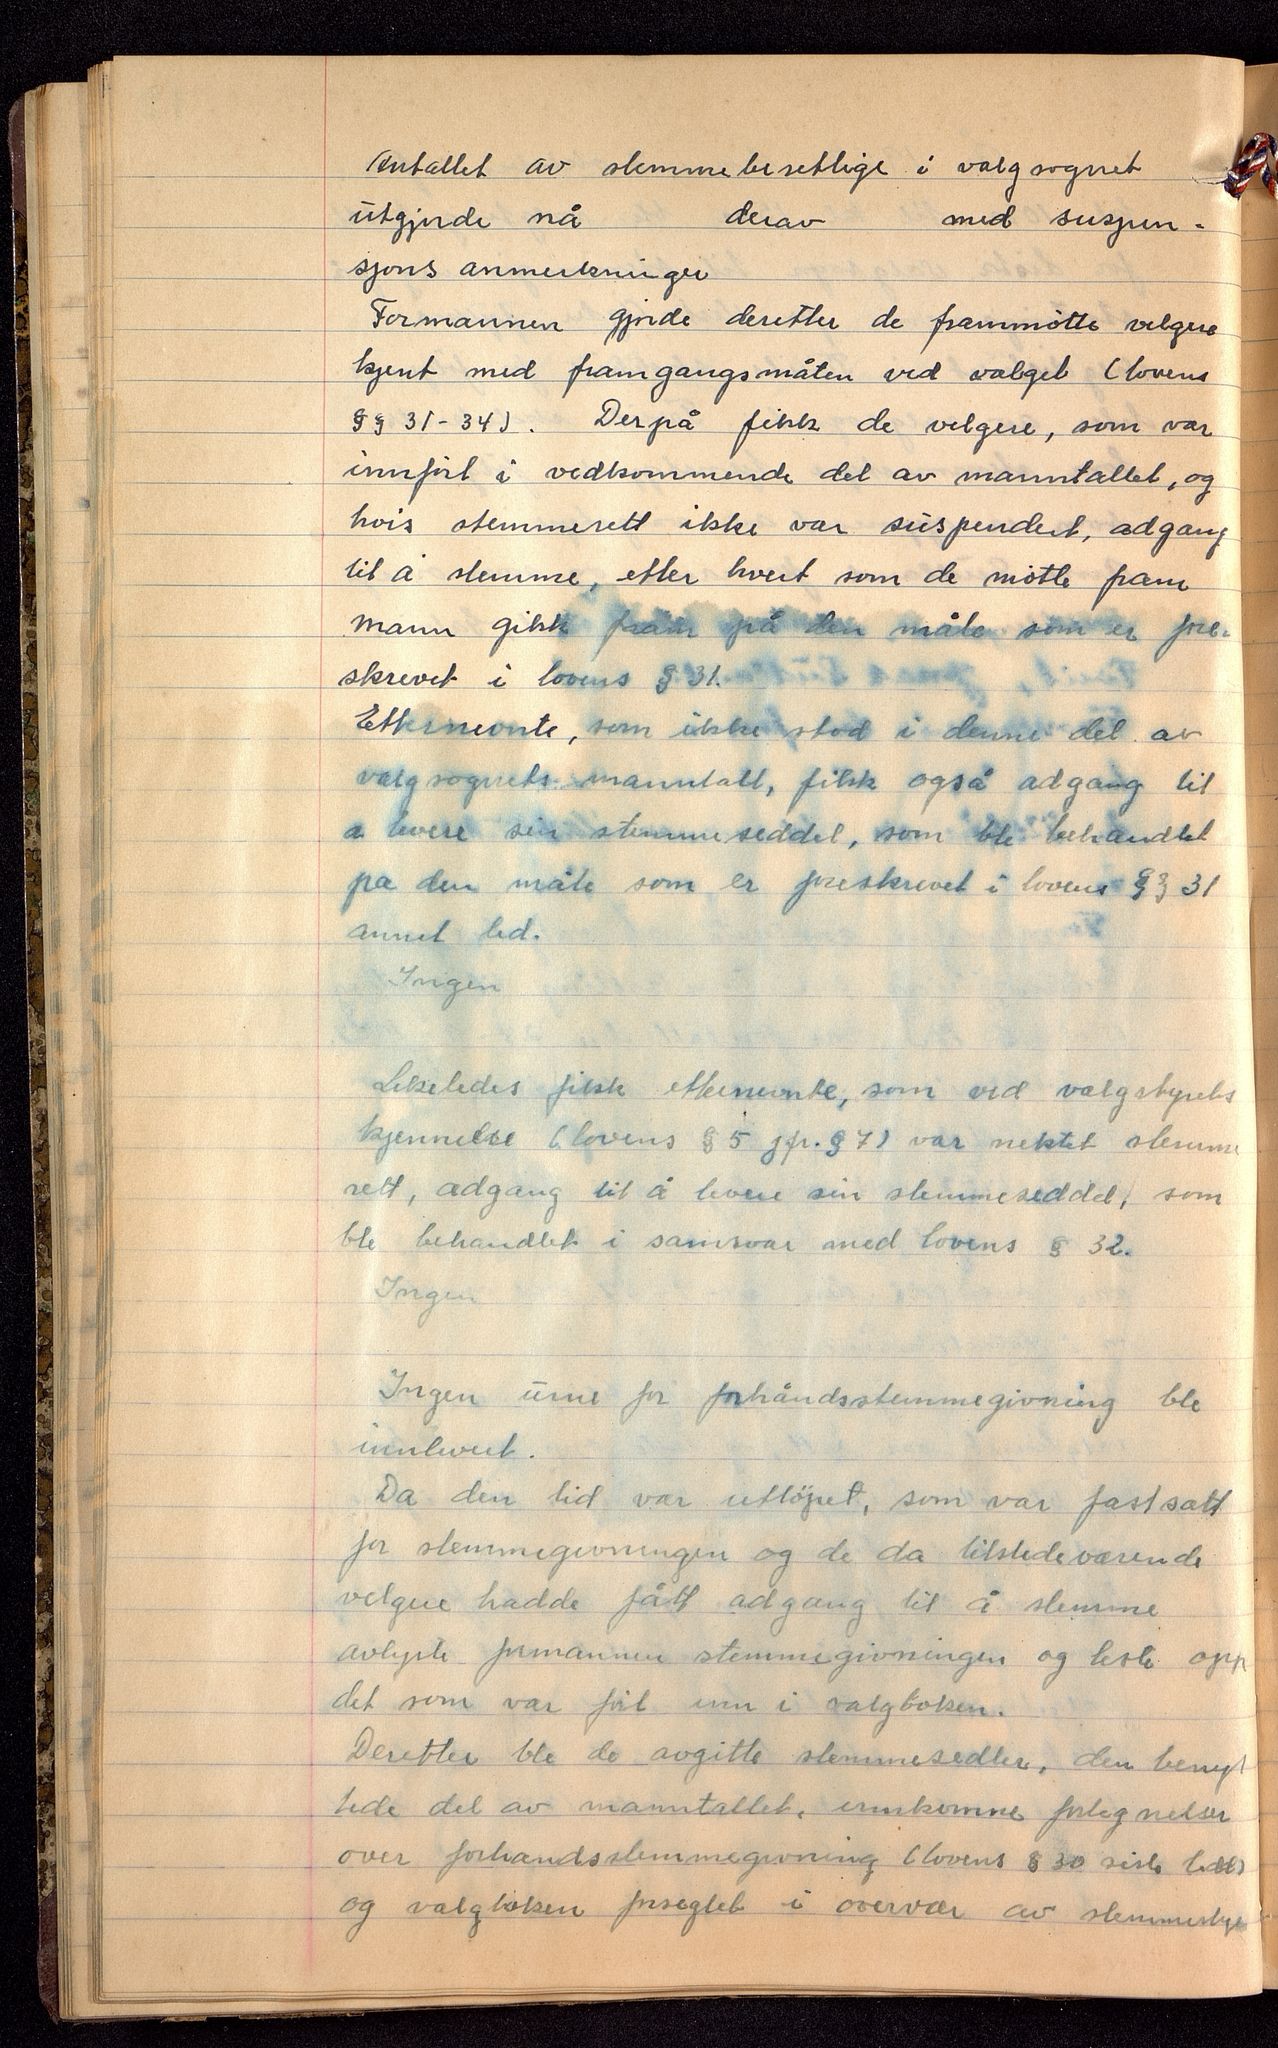 Antallet av stemmeberettlige i valgsognet
utgjorde nå derav med suspen-
sjons anmerkninger
Formannen gjorde deretter de frammøtte velgere
kjent med framgangsmåten ved valget (lovens
§§ 31-34). Derpå fikk de velgere, som var
innført i vedkommende del av manntallet, og
hvis stemmerett ikke var suspendert, adgang
til å stemme, etter hvert som de møtte fram
mann gikk fram på den måte som er fore-
skrevet i lovens § 31.
Etternevnte, som ikke stod i denne del av
valgsognets manntall, fikk også adgang til
a levere sin stemmeseddel, som ble behandlet
pa den måte som er foreskrevet i lovens §§ 31
annet led.
Ingen
Likeledes fikk etternevnte, som ved valgstyrets
kjennelse (lovens § 5 jfr. § 7) var nektet stemme
rett, adgang til å levere sin stemmeseddel, som
ble behandlet i samsvar med lovens § 32.
Ingen
Ingen urne for forhåndsstemmegivning ble
innlevert.
Da den tid var utløpet, som var fastsatt
for stemmegivningen og de da tilstedeværende
velgere hadde fått adgang til å stemme
avlyste formannen stemmegivningen og leste opp
det som var ført inn i valgboken.
Deretter ble de avgitte stemmesedler, den benyt
tede del av manntallet, innkomne fortegnelser
over forhandsstemmegivning (lovens § 30 siste ledd)
og valgboken forseglet i overvær av stemmestyre